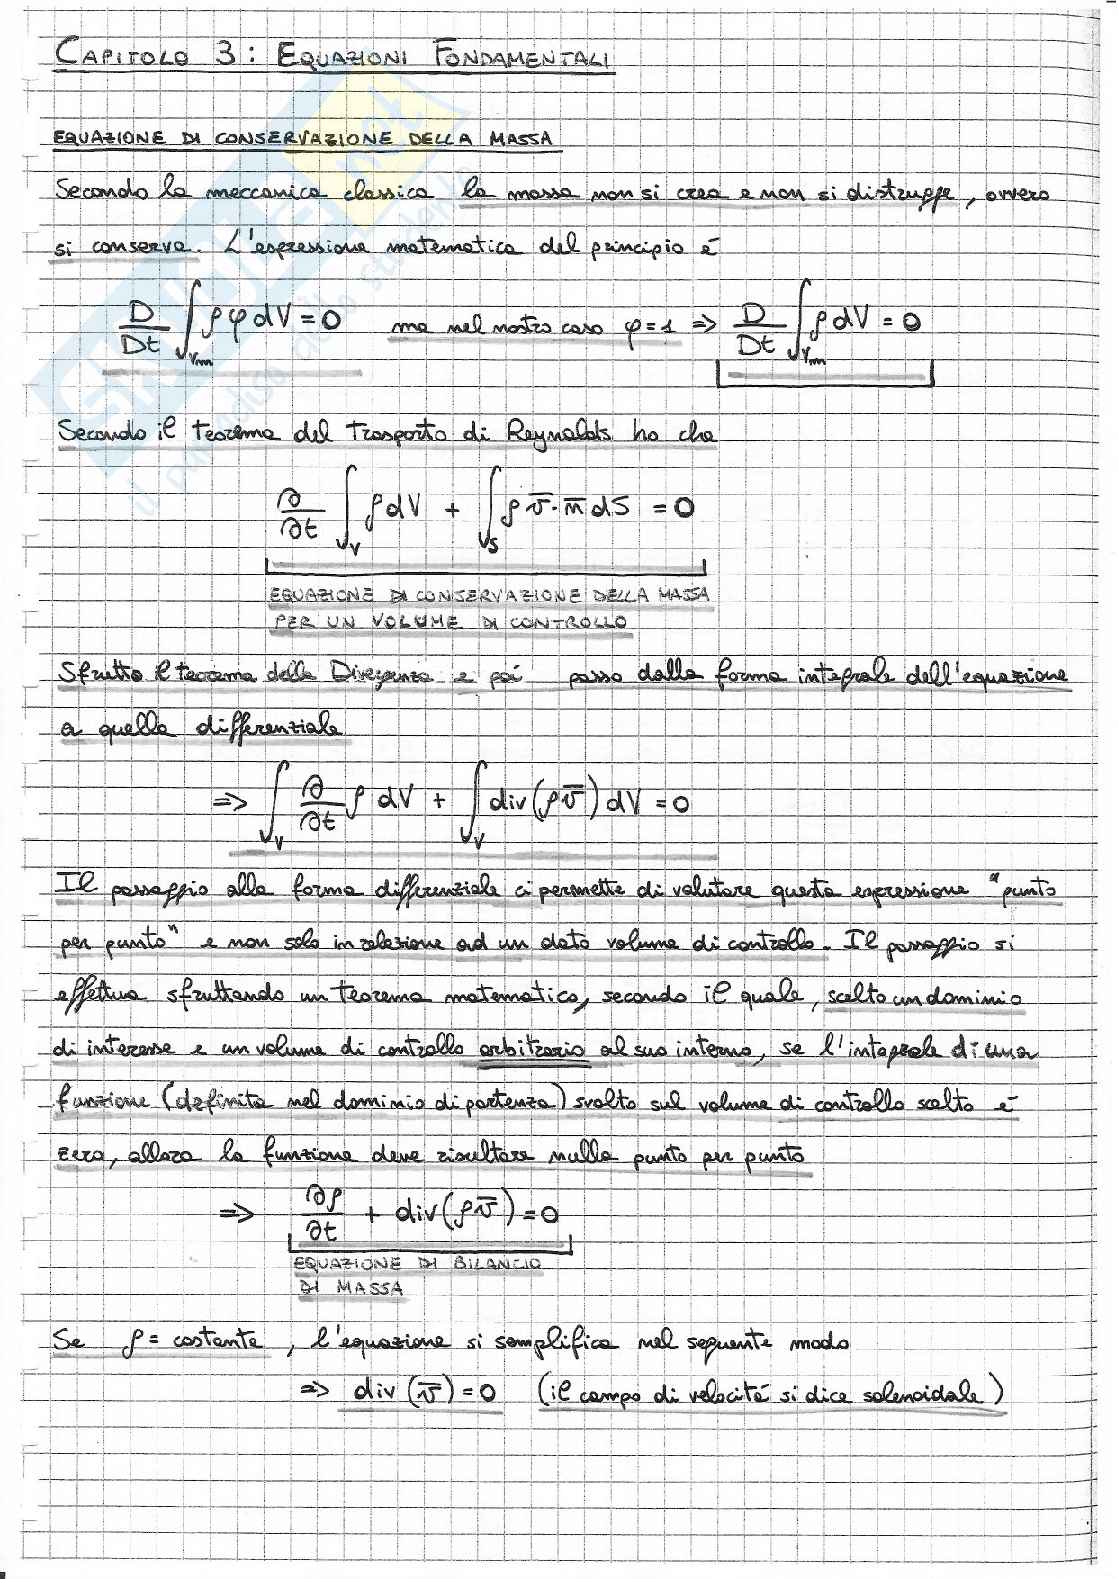 CAPITOLO 3: EQUAZIONI FONDAMENTALI
EQUAZIONE DI CONSERVAZIONE DELLA MASSA
Secondo la meccanica classica la massa non si crea e non si distrugge, ovvero
si conserva. L'espressione matematica del principio è
D/Dt ∫_Vm ρφdV = 0 ma nel nostro caso φ=1 => D/Dt ∫_Vm ρdV = 0
Secondo il teorema del trasporto di Reynolds ho che
∂/∂t ∫_V ρdV + ∫_S ρ v̅·n̅ dS = 0
EQUAZIONE DI CONSERVAZIONE DELLA MASSA
PER UN VOLUME DI CONTROLLO
Sfrutto il teorema della Divergenza e poi passo dalla forma integrale dell'equazione
a quella differenziale
=> ∫_V ∂/∂t ρ dV + ∫_V div(ρv̅) dV = 0
Il passaggio alla forma differenziale ci permette di valutare questa espressione "punto
per punto" e non solo in relazione ad un dato volume di controllo. Il passaggio si
effettua sfruttando un teorema matematico, secondo il quale, scelto un dominio
di interesse e un volume di controllo arbitrario al suo interno, se l'integrale di una
funzione (definita nel dominio di partenza) svolto sul volume di controllo scelto è
zero, allora la funzione deve risultare nulla punto per punto
=> ∂ρ/∂t + div(ρv̅) = 0
EQUAZIONE DI BILANCIO
DI MASSA
Se ρ = costante, l'equazione si semplifica nel seguente modo
=> div (v̅) = 0 (il campo di velocità si dice solenoidale)